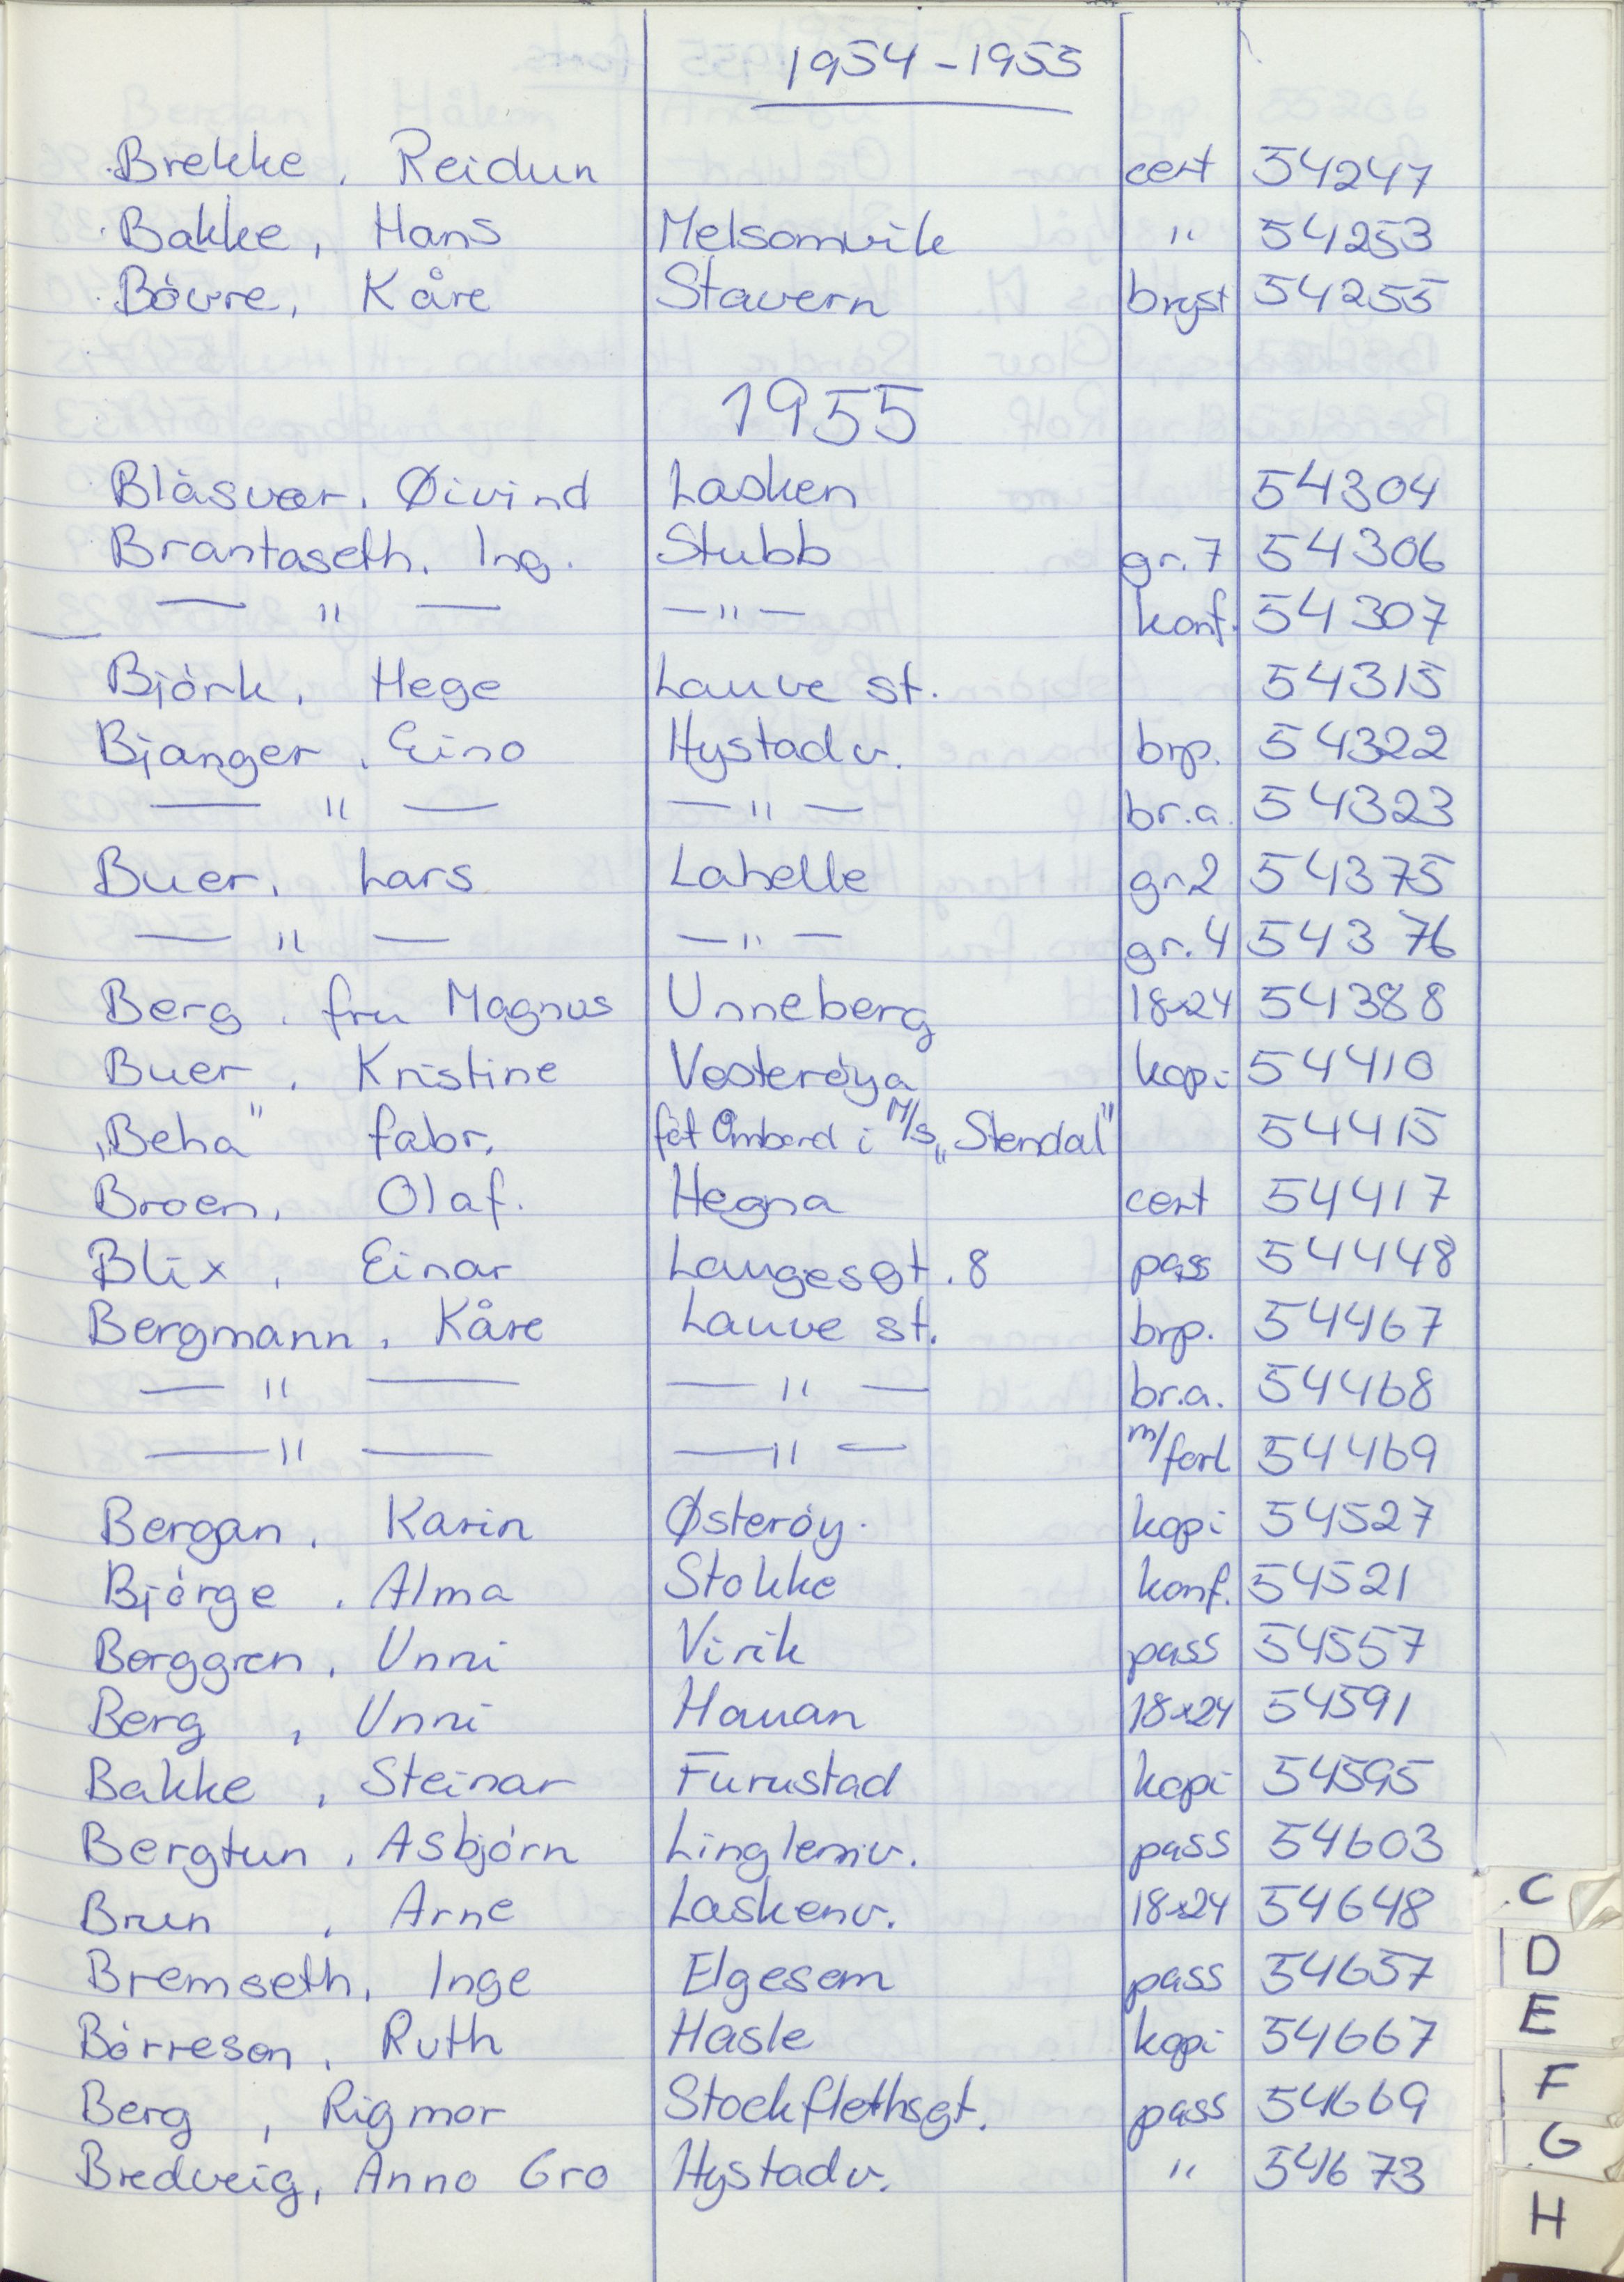 1954-1955
Brekke, Reidun cert 54247
Bakke, Hans Melsomvik " 54253
Bòvre, Kåre Stavern bryst 54255
1955
Blåsvær, Øivind Lasken 54304
Brantaseth, Ing. Stubb gr.7 54306
— " — — " — konf. 54307
Bjòrk, Hege Lauve st. 54315
Bjanger, Eino Hystadv. brp. 54322
— " — — " — br.a. 54323
Buer, Lars Lahelle gr.2 54375
— " — — " — gr.4 54376
Berg, fru Magnus Unneberg 18x24 54388
Buer, Kristine Vesterøya kopi 54410
„Beha" fabr. fòt Ombord i M/S „Stendal" 54415
Broen, Olaf. Hegna cert 54417
Blix, Einar Laugesgt. 8 pass 54448
Bergmann, Kåre Lauve st. brp. 54467
— " — — " — br.a. 54468
— " — — " — m/forl 54469
Bergan, Karin Østeròy. kopi 54527
Bjòrge, Alma Stokke konf. 54521
Berggren, Unni Virik pass 54557
Berg, Unni Hauan 18x24 54591
Bakke, Steinar Furustad kopi 54595
Bergtun, Asbjòrn Linglemv. pass 54603
Brun, Arne Laskenv. 18x24 54648
Bremseth, Inge Elgesem pass 54657
Bòrreson, Ruth Hasle kopi 54667
Berg, Rigmor Stockflethsgt. pass 54669
Bredveig, Anno Gro Hystadv. " 54673
C
D
E
F
G
H